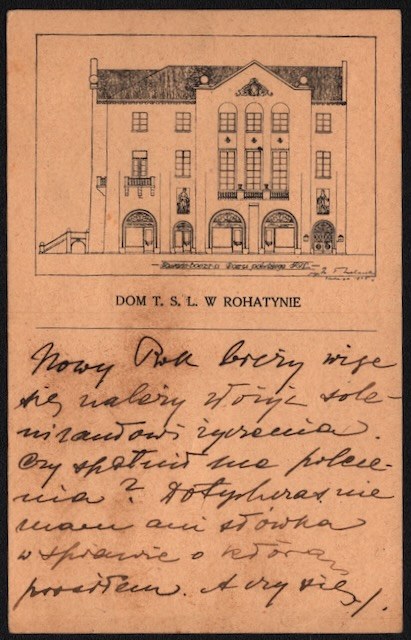 DOM T. S. L. W ROHATYNIE
Nowy Rok bieży więc
się należy złożyć sole-
nizantowi życzenia.
Czy spełnił me polece-
nia? Dotychczas nie
mam ani słówka
w sprawie o którą
prosiłem. A czy się